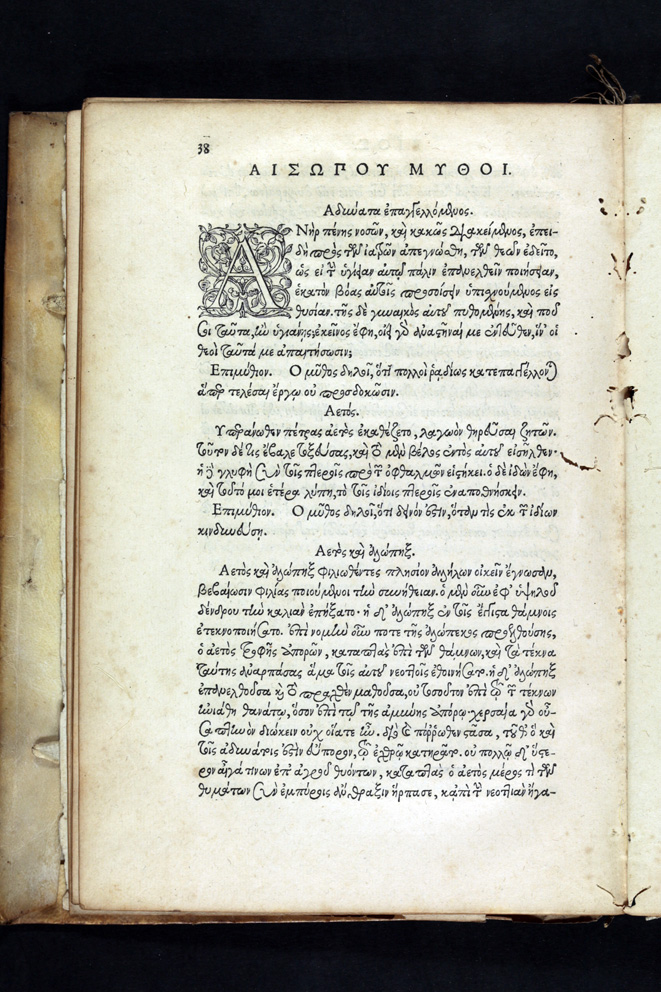 38
ΑΙΣΩΠΟΥ ΜΥΘΟΙ.
Ἀδύνατα ἐπαγγελλόμενος.
ΑΝὴρ πένης νοσῶν, καὶ κακῶς διακείμενος, ἐπει-
δὴ πρὸς τῶν ἰατρῶν ἀπεγνώσθη, τῶν θεῶν ἐδεῖτο,
ὡς εἰ τὴν ὑγίειαν αὐτῷ πάλιν ἐπανελθεῖν ποιήσειαν,
ἑκατὸν βόας αὐτοῖς προσοίσειν ὑπισχνούμενος εἰς
θυσίαν. τῆς δὲ γυναικὸς αὐτοῦ πυθομένης, καὶ ποῦ
σοι ταῦτα, ἢν ὑγιάνῃς; ἐκεῖνος ἔφη, οἴει γὰρ ἀναστῆναί με ἐντεῦθεν, ἵν' οἱ
θεοὶ ταῦτά με ἀπαιτήσωσιν;
Ἐπιμύθιον. Ὁ μῦθος δηλοῖ, ὅτι πολλοὶ ῥᾳδίως κατεπαγγέλλονται
ἅπερ τελέσαι ἔργῳ οὐ προσδοκῶσιν.
Ἀετός.
Ὑπεράνωθεν πέτρας ἀετὸς ἐκαθέζετο, λαγωὸν θηρεῦσαι ζητῶν.
τοῦτον δέ τις ἔβαλε τοξεύσας, καὶ τὸ μὲν βέλος ἐντὸς αὐτοῦ εἰσῆλθεν·
ἡ δὲ γλυφὴ σὺν τοῖς πτεροῖς πρὸ τῶν ὀφθαλμῶν εἱστήκει. ὁ δὲ ἰδὼν ἔφη,
καὶ τοῦτό μοι ἑτέρα λύπη, τὸ τοῖς ἰδίοις πτεροῖς ἐναποθνήσκειν.
Ἐπιμύθιον. Ὁ μῦθος δηλοῖ, ὅτι δεινόν ἐστιν, ὅταν τὶς ἐκ τῶν ἰδίων
κινδυνεύσῃ.
Ἀετὸς καὶ ἀλώπηξ.
Ἀετὸς καὶ ἀλώπηξ φιλιωθέντες πλησίον ἀλλήλων οἰκεῖν ἔγνωσαν,
βεβαίωσιν φιλίας ποιούμενοι τὴν συνήθειαν. ὁ μὲν οὖν ἐφ' ὑψηλοῦ
δένδρου τὴν καλιὰν ἐπήξατο· ἡ δ' ἀλώπηξ ἐν τοῖς ἔγγιστα θάμνοις
ἐτεκνοποιήσατο. ἐπὶ νομὴν οὖν ποτε τῆς ἀλώπεκος προελθούσης,
ὁ ἀετὸς τροφῆς ἀπορῶν, καταπτὰς ἐπὶ τῶν θάμνων, καὶ τὰ τέκνα
ταύτης ἀναρπάσας ἅμα τοῖς αὐτοῦ νεοττοῖς ἐθοινήσατο. ἡ δ' ἀλώπηξ
ἐπανελθοῦσα καὶ τὸ πραχθὲν μαθοῦσα, οὐ τοσοῦτον ἐπὶ τῷ τῶν τέκνων
ἠνιάθη θανάτῳ, ὅσον ἐπὶ τῷ τῆς ἀμύνης ἀπόρῳ· χερσαία γὰρ οὖ-
σα πτηνὸν διώκειν οὐχ οἵα τε ἦν. διὸ καὶ πόρρωθεν στᾶσα, τοῦθ' ὃ καὶ
τοῖς ἀδυνάτοις ἐστὶν εὔπορον, τῷ ἐχθρῷ κατηρᾶτο. οὐ πολλῷ δ' ὕστε-
ρον αἶγά τινων ἐπ' ἀγροῦ θυόντων, καταπτὰς ὁ ἀετὸς μέρος τὶ τῶν
θυμάτων σὺν ἐμπύροις ἄνθραξιν ἥρπασε, κἀπὶ τὴν νεοττιὰν ἤγα-